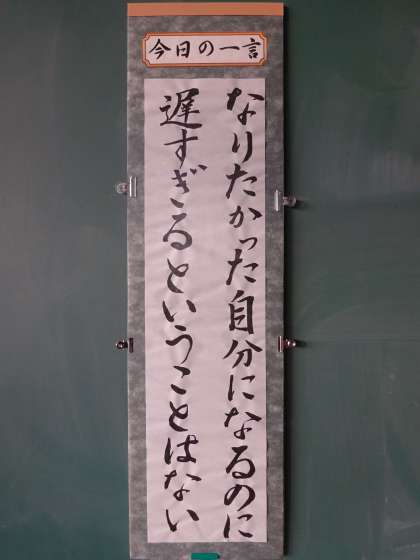 今日の一言
なりたかった自分になるのに
遅すぎるということはない